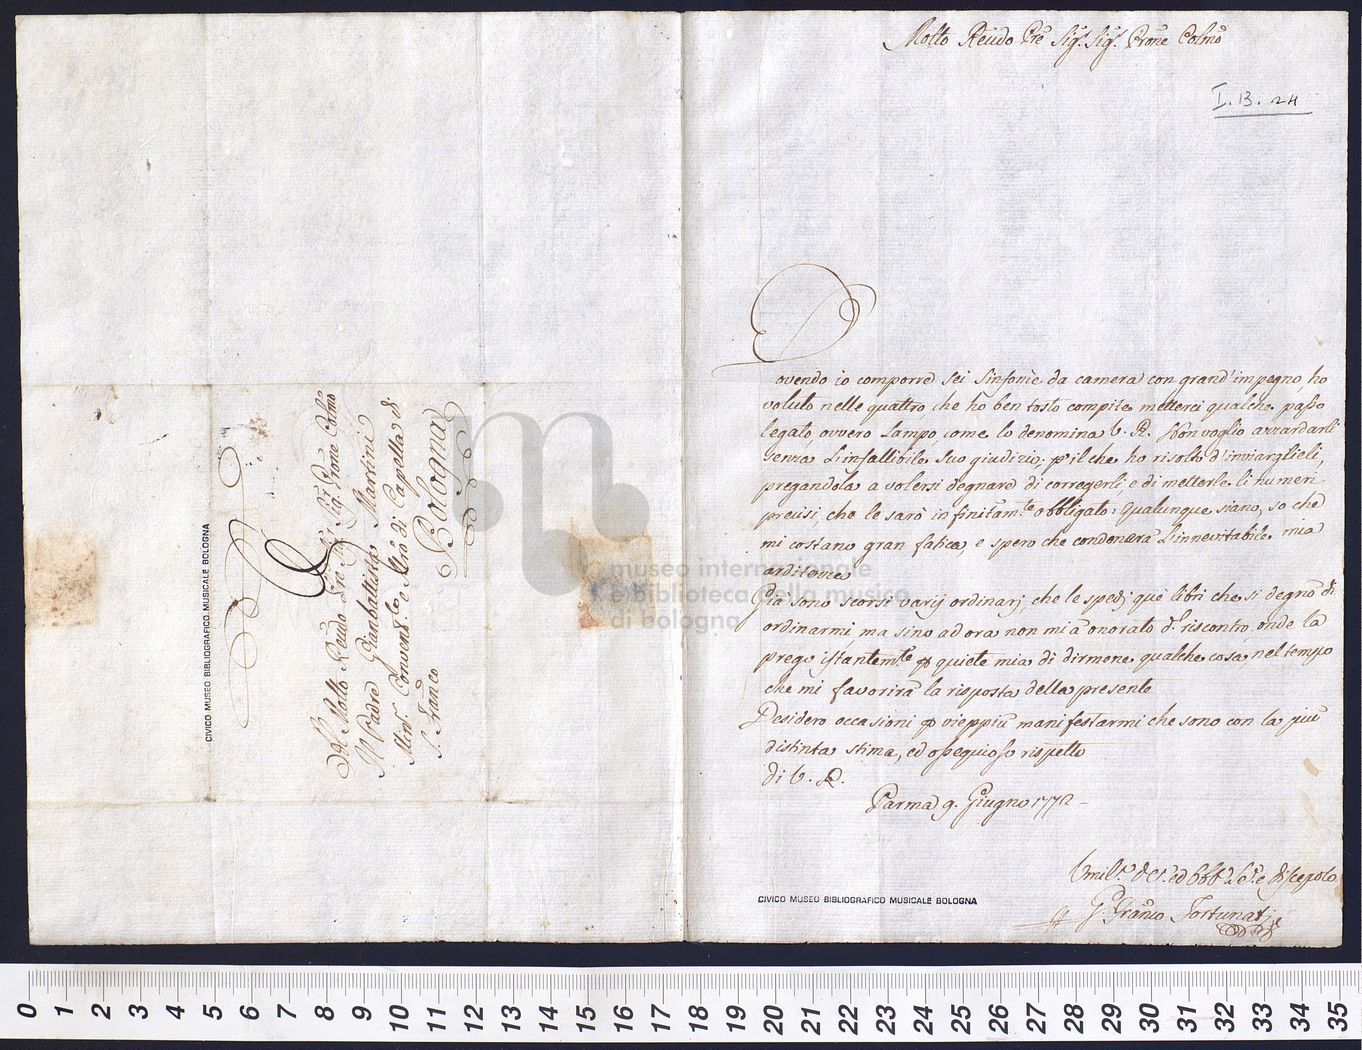 Molto Reũdo Prẽ Sigr. Sigr. Prone Colmo
I. B. 24
Dovendo io comporre sei Sinfonie da camera con grand'impegno, ho
voluto nelle quattro che ho ben tosto compite metterci qualche passo
legato, ovvero Lampo come lo denomina V. R. Non voglio azzardarli
senza l'infallibile suo giudizio; p il che ho risolto d'inviarglieli,
pregandola a volersi degnare di corregerli, e di metterle li numeri
precisi, che le sarò infinitamte obbligato: Qualunque siano, so che
mi costano gran fatica e spero che condonerà l'innevitabile mia
Già sono scorsi varij ordinarj, che le spedj que libri che si degnò di
ordinarmi, ma sino ad ora non mi à onorato di riscontro, onde la
prego istantemte p quiete mia di dirmene qualche cosa nel tempo
che mi favorirà la risposta della presente
Desidero occasioni p vieppiù manifestarmi che sono con la più
distinta stima, ed ossequioso rispetto
di V. R.
Parma 9. Giugno 1772
Umilo discepolo
Franco Fortunati
Al Molto Reũdo Pre Sigr. Sigr. Prone Colmo
Il Padre Gianbattista Martini
Minr. Convenle. e Mro di Capella di
S. Franco
Bologna
CIVICO MUSEO BIBLIOGRAFICO MUSICALE BOLOGNA
CIVICO MUSEO BIBLIOGRAFICO MUSICALE BOLOGNA
museo internazionale
e biblioteca della musica
di bologna
0 1 2 3 4 5 6 7 8 9 10 11 12 13 14 15 16 17 18 19 20 21 22 23 24 25 26 27 28 29 30 31 32 33 34 35